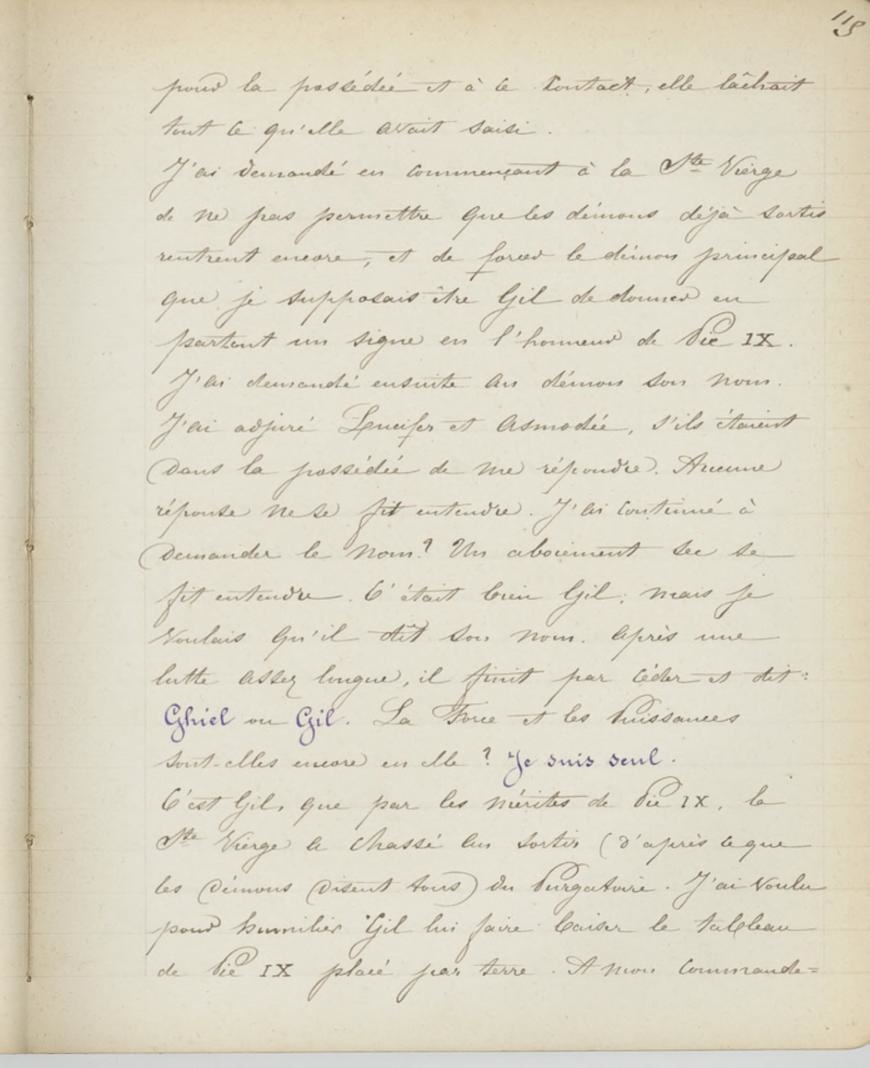 115
pour la possédée et à ce contact, elle lâchait
tout ce qu'elle avait saisi.
J'ai demandé en commençant à la Ste Vierge
de ne pas permettre que les démons déjà sortis
rentrent encore, et de forcer le démon principal
que je supposais être Gil de donner en
partant un signe en l'honneur de Pie IX.
J'ai demandé ensuite au démon son nom.
J'ai adjuré Lucifer et Asmodée, s'ils étaient
dans la possédée de me répondre. Aucune
réponse ne se fit entendre. J'ai continué à
demander le nom? Un aboiement sec se
fit entendre. C'était bien Gil; mais je
voulais qu'il dît son nom. Après une
lutte assez longue, il finit par céder et dit:
Ghiel ou Gil. La Force et les Puissances
sont-elles encore en elle? Je suis seul.
C'est Gil, que par les mérites de Pie IX, la
Ste Vierge a chassé au sortir (d'après ce que
les démons disent tous) du Purgatoire. J'ai voulu
pour humilier Gil lui faire baiser le tableau
de Pie IX placé par terre. A mon commande=